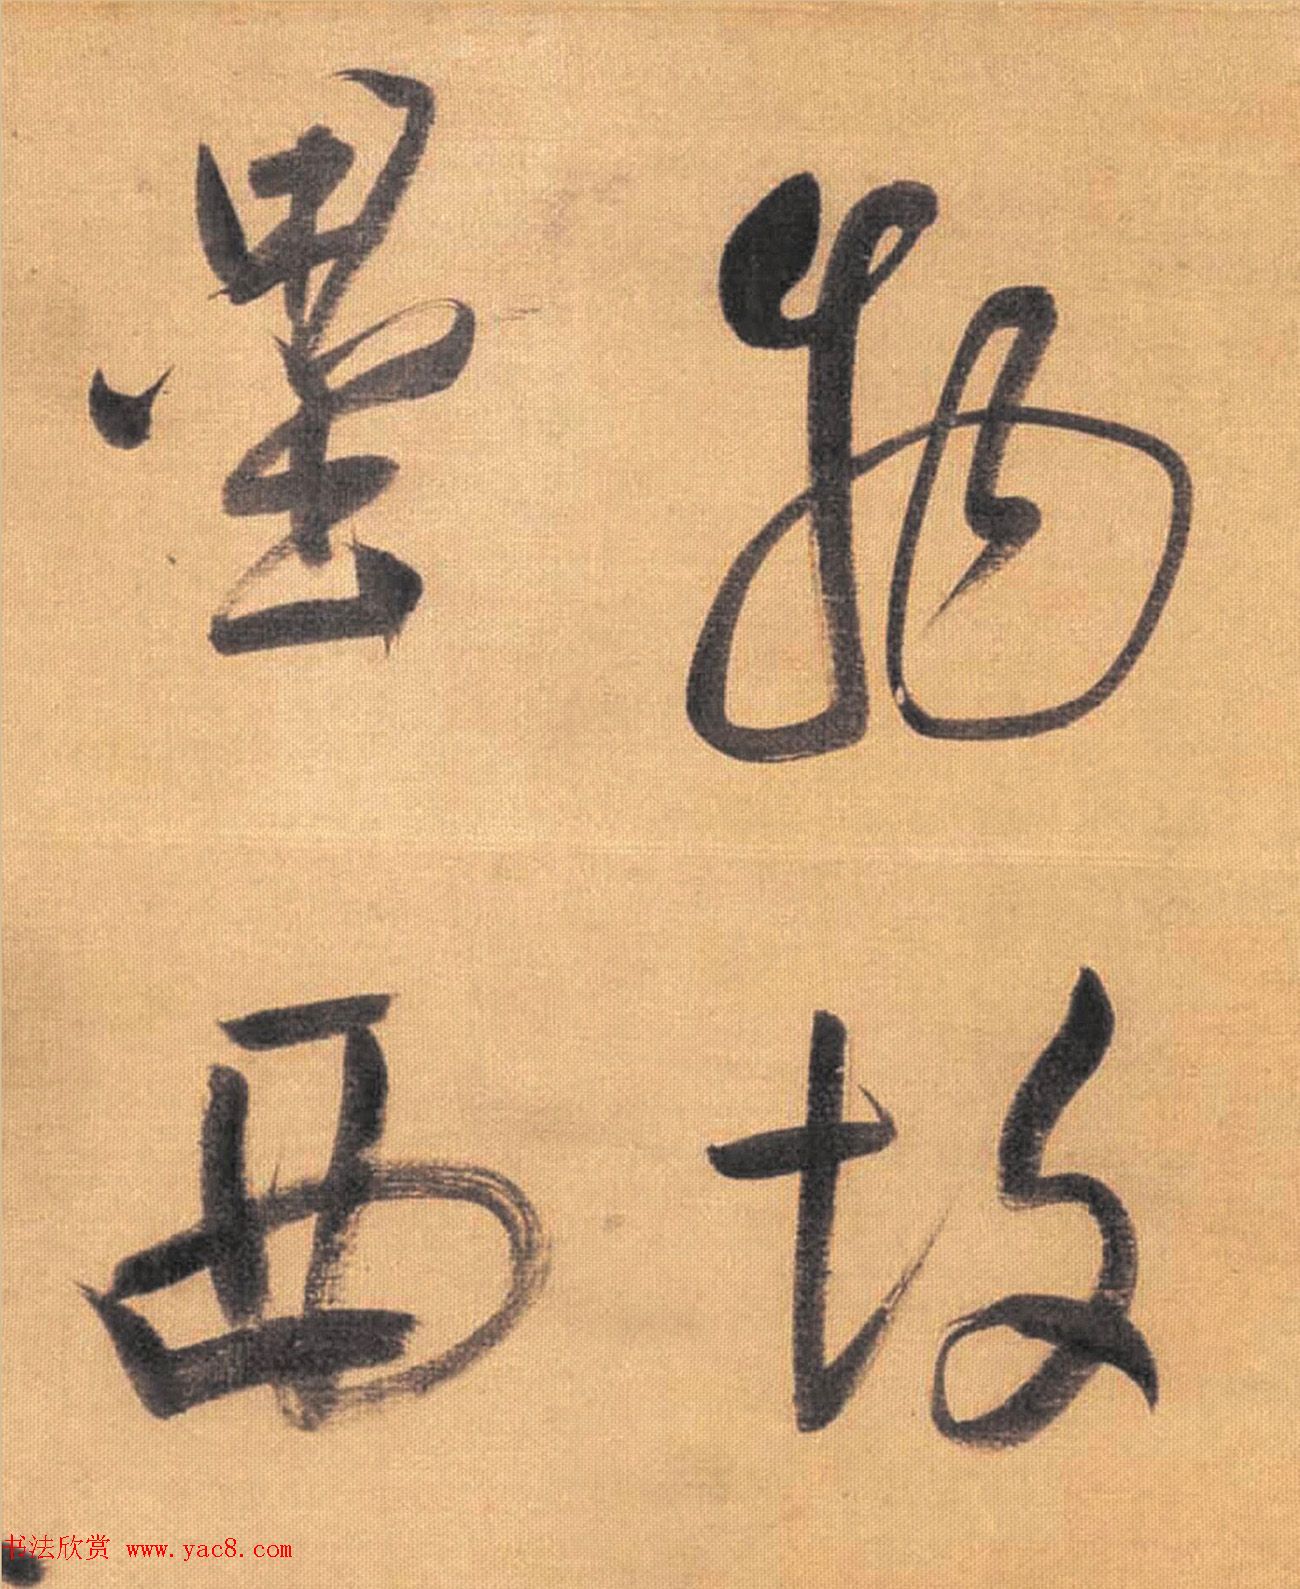 物故
壘西
书法欣赏 www.yac8.com